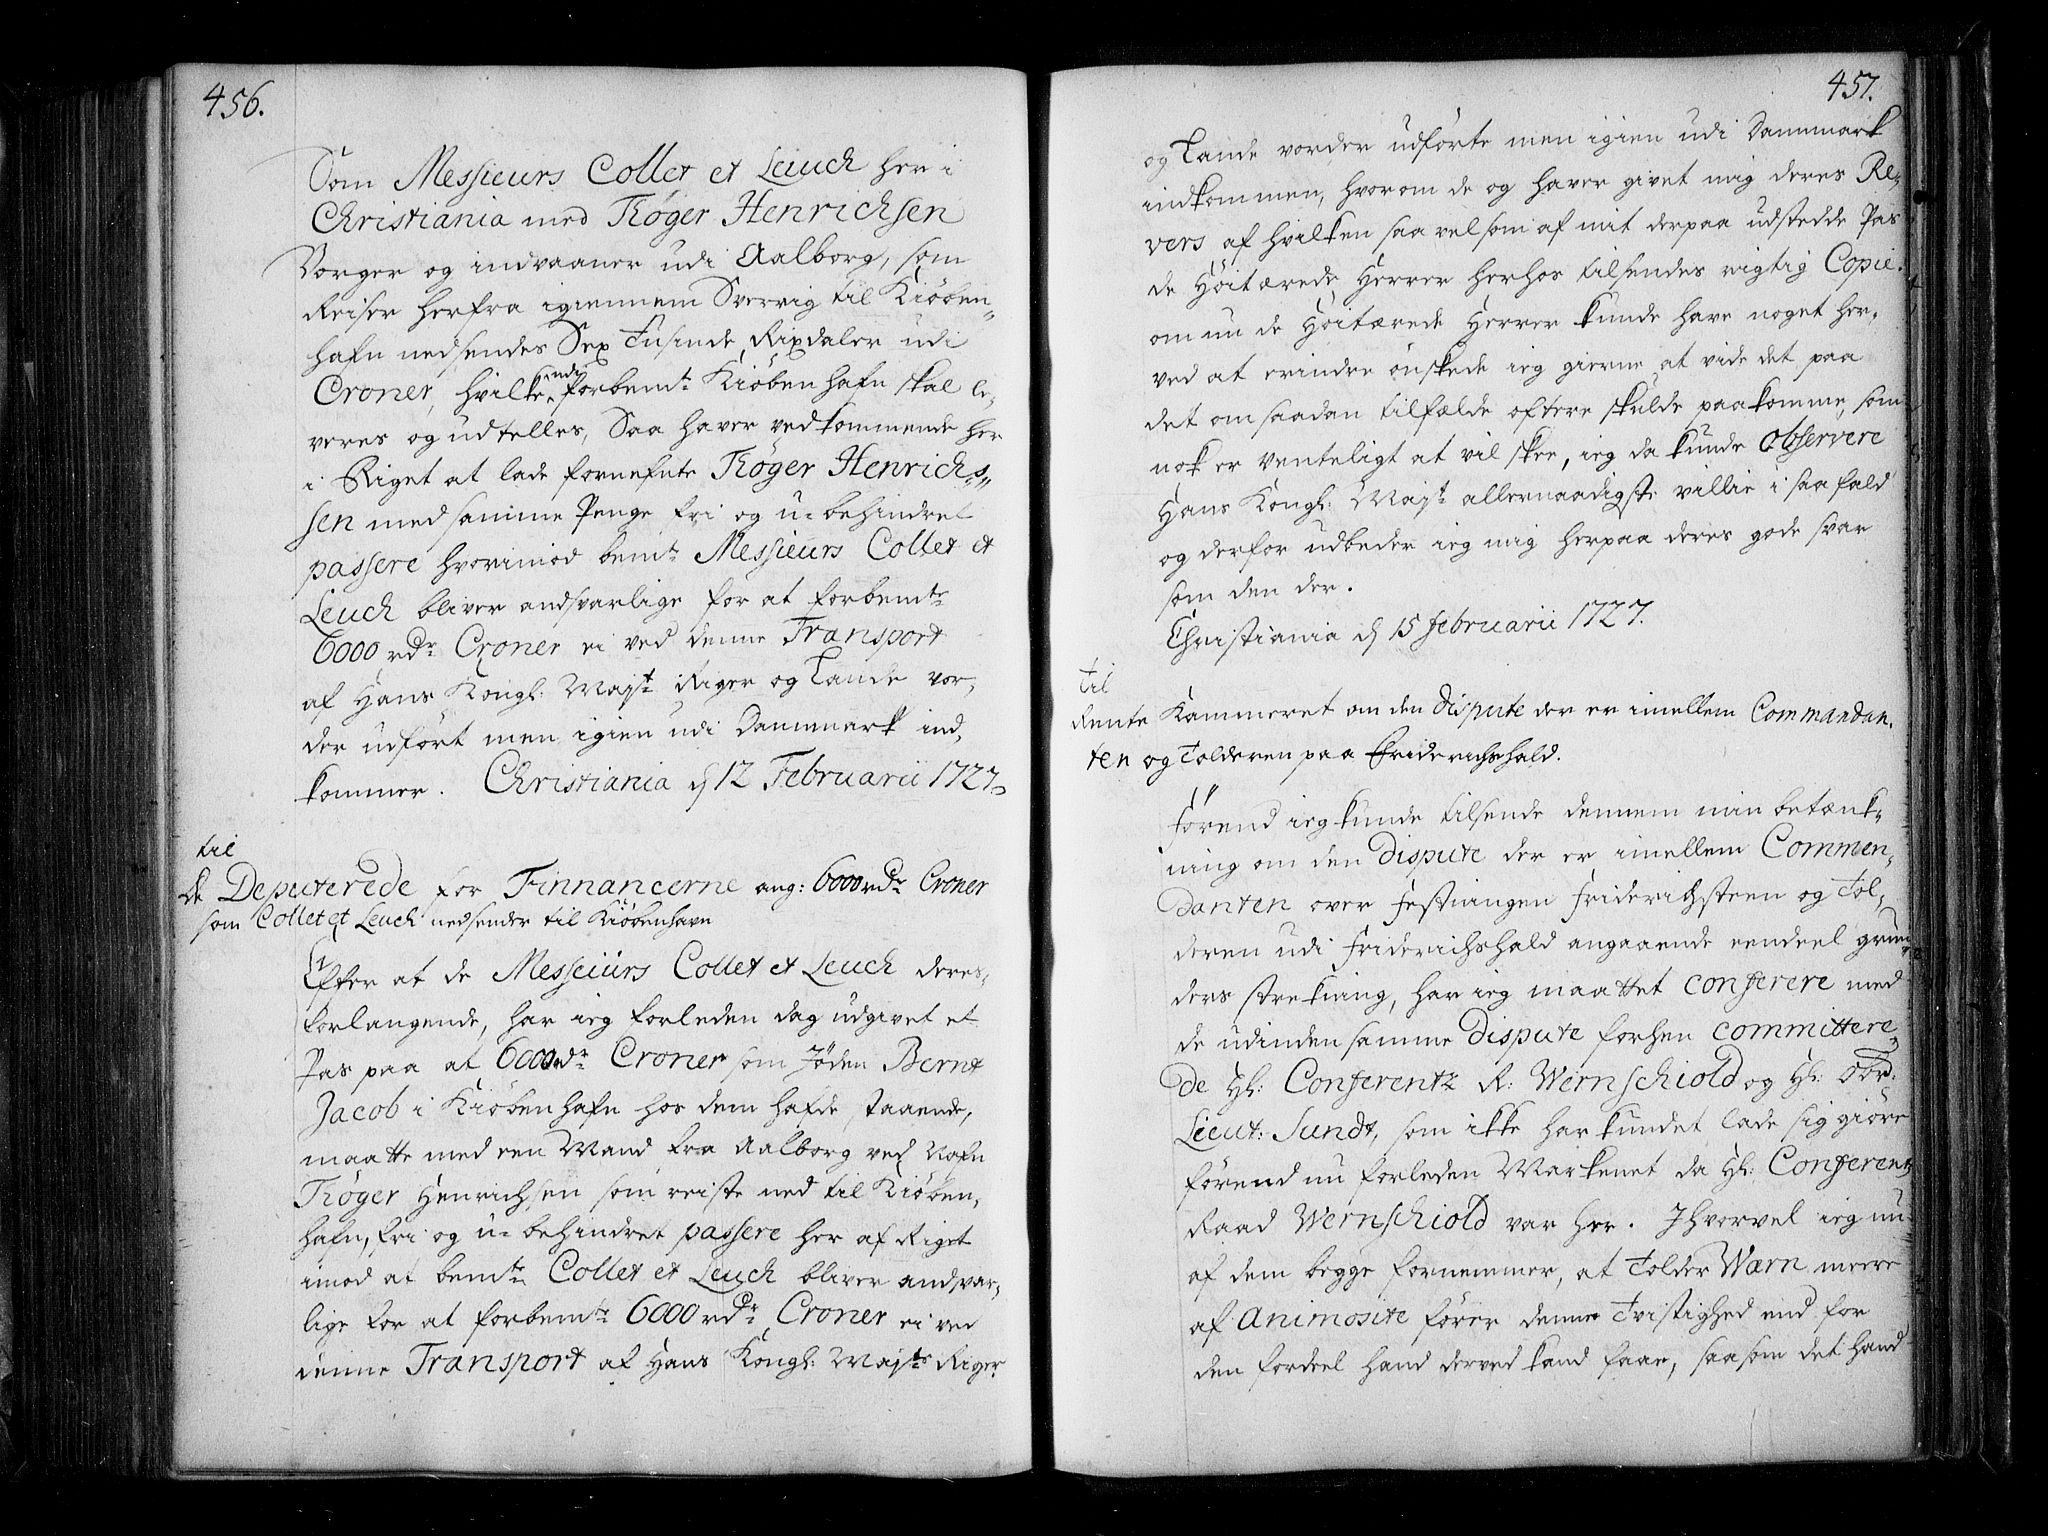 456.
Som Messieurs Collet et Leuch her i
Christiania med Röger Henrichsen
Borger og indvaaner udi Aalborg, som
Reiser herfra igiennem Sverrig til Kiöben-
hafn nedsendes Sex Tusinde Rixdaler udi
Croner, hvilke udi forbemte Kiöbenhafn skal le-
veres og udtelles, Saa haver vedkommende her
i Riget at lade fornefnte Röger Henrichs-
sen med samme Penge fri og u-behindret
passere hvorimod bemte Messieurs Collet et
Leuch bliver andsvarlige for at forbemte
6000 rdr Croner ei ved denne Transport
af Hans Kongl: Mayts Riger og Lande vor-
der udfört men igien udi Dannmark ind-
kommer. Christiania d 12 Februarii 1727
til
De Deputerede for Finnancerne ang: 6000 rdr Croner
som Collet et Leuch nedsender til Kiöbenhavn
Efter at de Messeiurs Collet et Leuch deres
forlangende, har ieg forleden dag udgivet et
Pas paa at 6000 rdr Croner som Jöden Bernt
Jacob i Kiöbenhafn hos dem hafde staaende,
maatte med een Mand fra Aalborg ved Nafn
Röger Henrichsen som reiste ned til Kiöben-
hafn, fri og u-behindret passere her af Riget
imod at bemte Collet et Leuch bliver andsvar-
lige for at forbemte 6000 rdr Croner ei ved
denne Transport af Hans Kongl: Mayts Riger
457.
og Lande vorder udförte men igien udi Dannmark
indkommen, hvorom de og haver givet mig deres Re-
vers af hvilken saa vel som af mit derpaa udstedde Pas
de Höitærede Herrer herhos tilsendes rigtig Copie.
om nu de Höitærede Herrer kunde have noget her-
ved at erindre önskede ieg gierne at vide det paa
det om saadan tilfælde oftere skulde paakomme, som
nok er venteligt at vil skee, ieg da kunde observere
Hans Kongl: Mayts allernaadigste villie i saa fald
og derfor udbeder ieg mig herpaa deres gode svar
som den der.
Christiania d 15 februarii 1727.
til
Rente Kammeret om den dispute der er imellem Commandan-
ten og Tolderen paa Friderichshald.
Förend ieg kunde tilsende dennem min betænk-
ning om den dispute der er imellem Commen-
danten over Festningen Friderichsteen og Tol-
deren udi Friderichshald angaaende eendeel grun-
ders strekning, har ieg maattet conferere med
de udinden samme dispute forhen committere-
de Hl: Conferentz R: Wernschiold og Hl: Obr:
Lieut: Sundt, som ikke har kundet lade sig giöre
förend nu forleden Markenet da Hl: Conferentz
Raad Wernschiold var her. Ihvorvel ieg nu
af dem begge fornemmer, at Tolder Wærn meere
af Animosite förer denne Tvistighed end for
den fordeel hand derved kand faae, saasom det hand